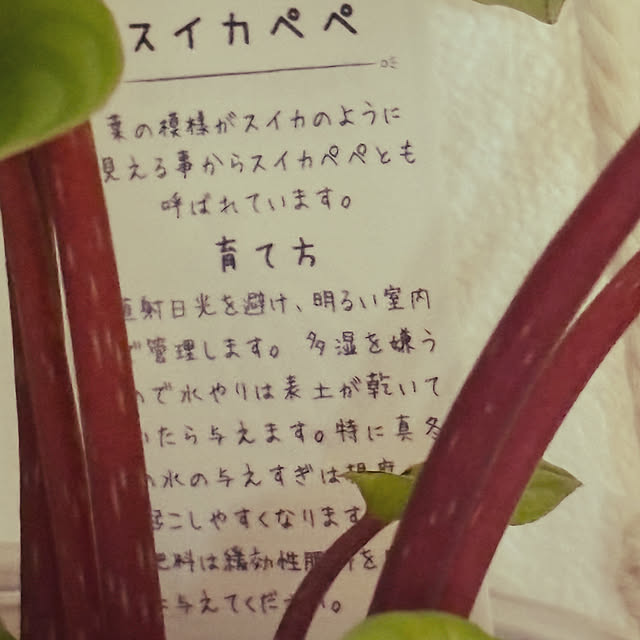 スイカペペ
葉の模様がスイカのように
見える事からスイカペペとも
呼ばれています。
育て方
直射日光を避け、明るい室内
で管理します。多湿を嫌う
ので水やりは表土が乾いて
いたら与えます。特に真冬
の水の与えすぎは根腐
起こしやすくなります
肥料は緩効性肥料を
与えてください。